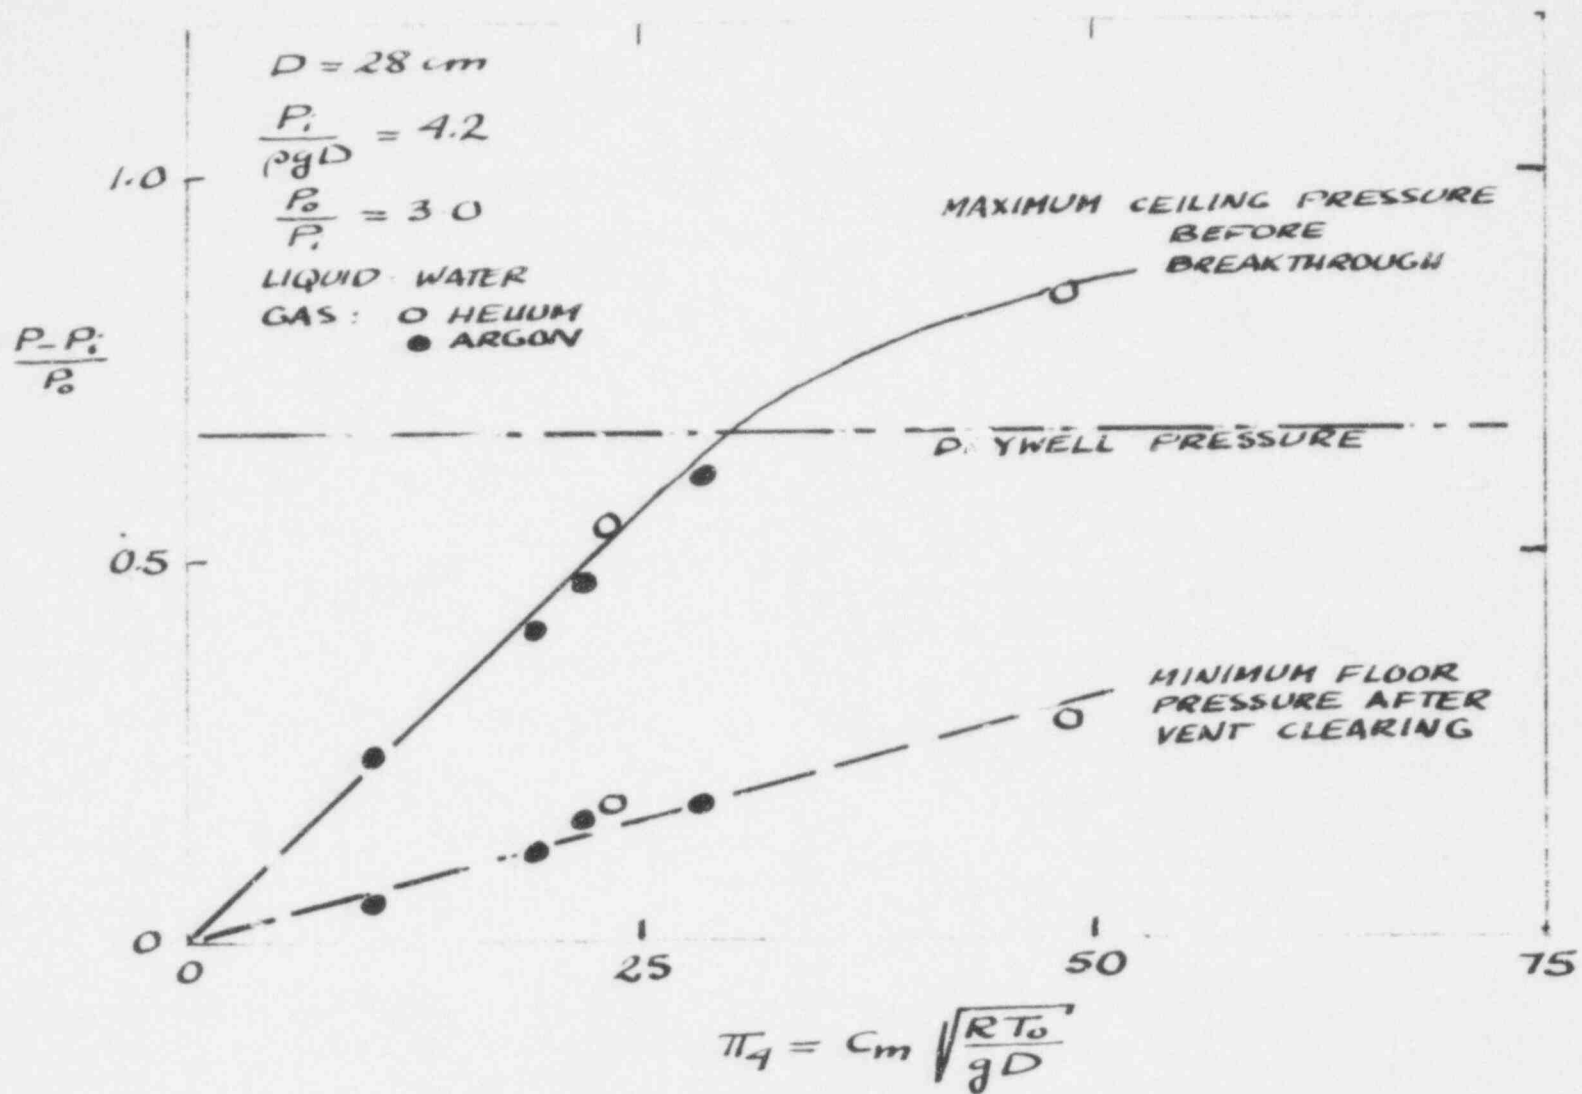 D = 28 cm
P_i / ρgD = 4.2
P_o / P_i = 3.0
LIQUID WATER
GAS: O HELIUM
● ARGON
1.0
MAXIMUM CEILING PRESSURE
BEFORE
BREAKTHROUGH
P - P_i / P_o
D. YWELL PRESSURE
0.5
MINIMUM FLOOR
PRESSURE AFTER
VENT CLEARING
0
0 25 50 75
π_4 = C_m √(RT_o / gD)